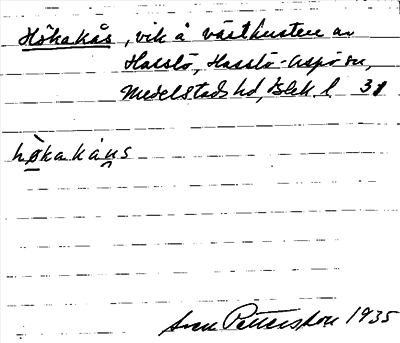 Hökakås, vik å västkusten av
Hasslö, Hasslö-Aspö sn,
Medelstads hd, Blek. l. 31
hökakåns
Sven Pettersson 1935